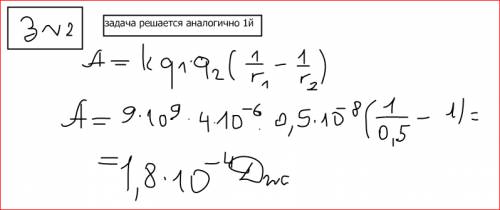 З№2
задача решается аналогично 1й
A = k q1·q2 (1/r1 − 1/r2)
A = 9·10⁹·4·10⁻⁶·0,5·10⁻⁸ (1/0,5 − 1) =
= 1,8·10⁻⁴ Дж